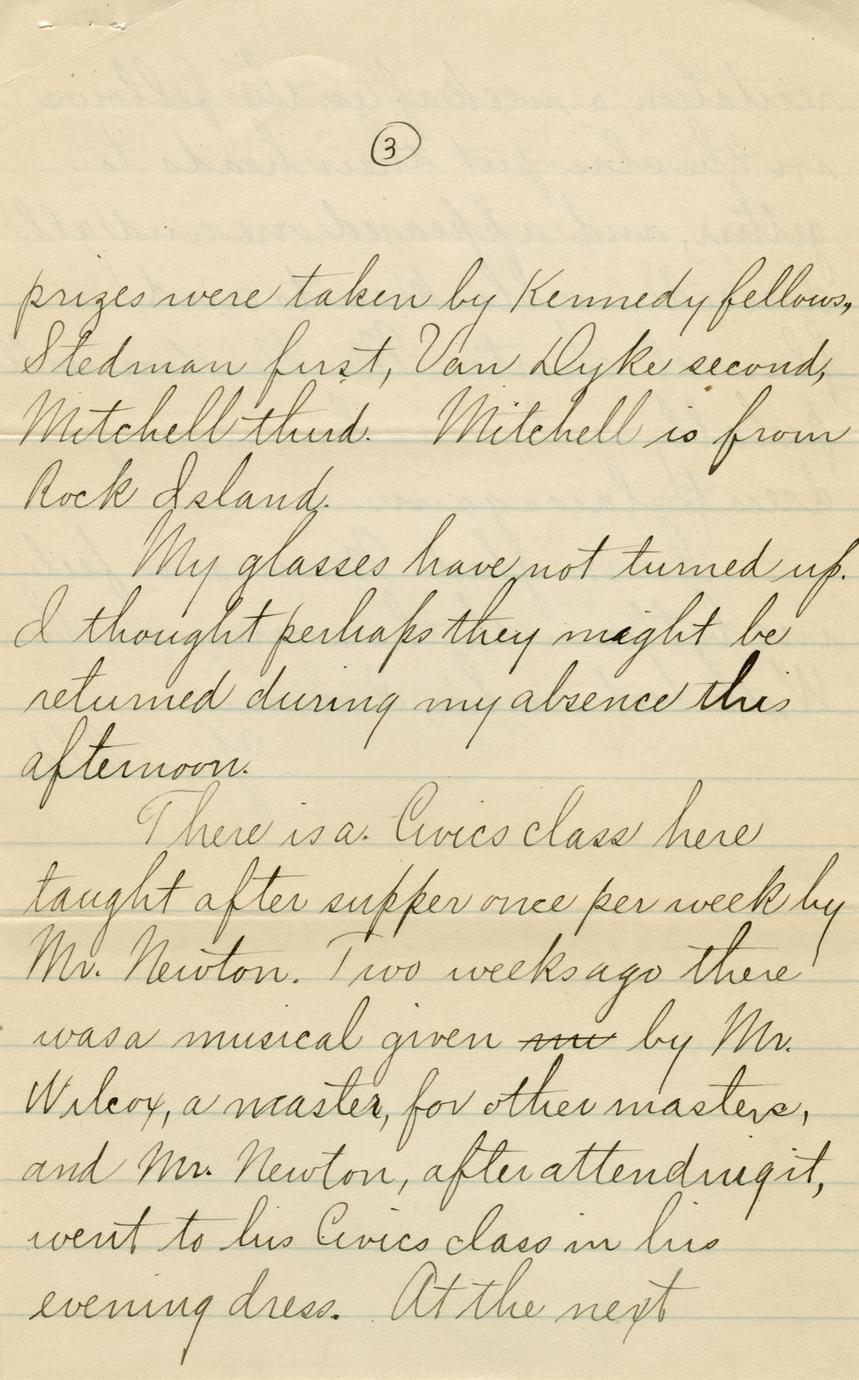 3
prizes were taken by Kennedy fellows,
Stedman first, Van Dyke second,
Mitchell third. Mitchell is from
Rock Island.
My glasses have not turned up.
I thought perhaps they might be
returned during my absence this
afternoon.
There is a Civics class here
taught after supper once per week by
Mr. Newton. Two weeks ago there
was a musical given by Mr.
Wilcox, a master, for other masters,
and Mr. Newton, after attending it,
went to his Civics class in his
evening dress. At the next